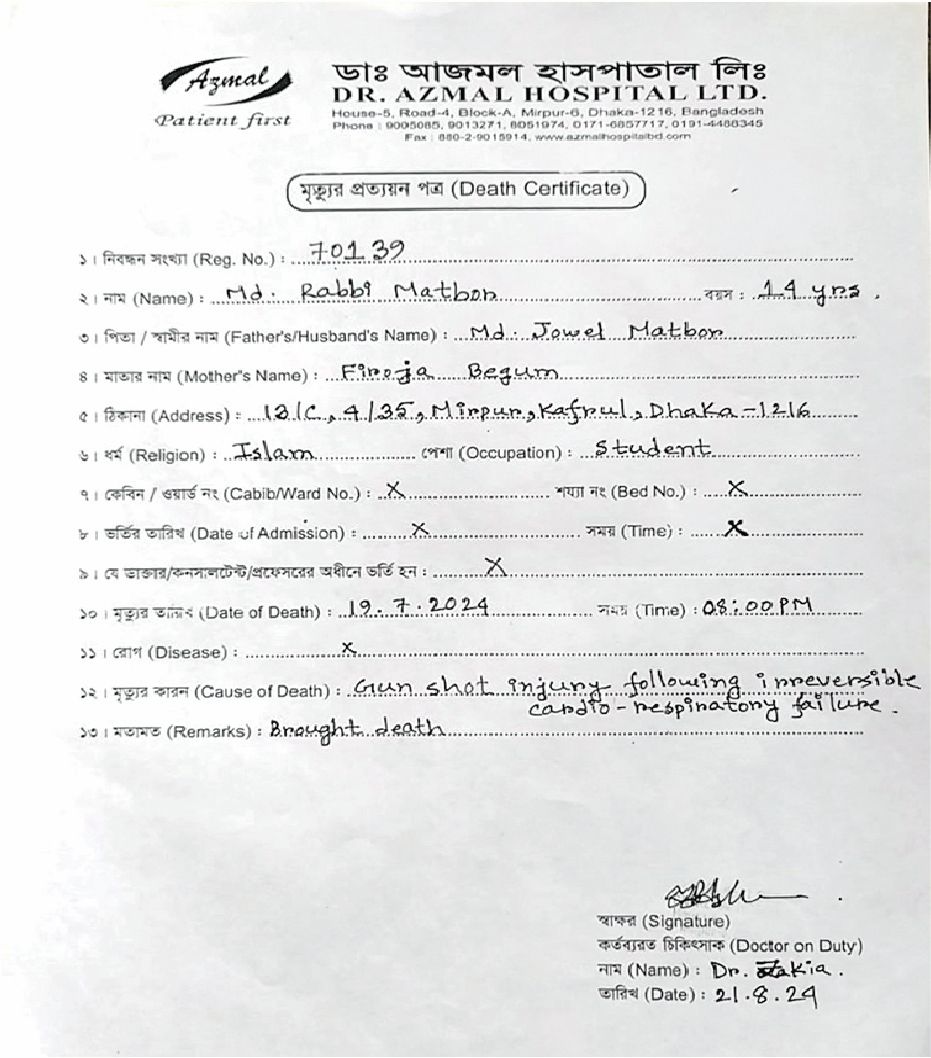 Azmal
Patient first
ডাঃ আজমল হাসপাতাল লিঃ
DR. AZMAL HOSPITAL LTD.
House-5, Road-4, Block-A, Mirpur-6, Dhaka-1216, Bangladesh
Phone : 9005085, 9013271, 8051974, 0171-6857717, 0191-4486345
Fax : 880-2-9015914, www.azmalhospitalbd.com
মৃত্যুর প্রত্যয়ন পত্র (Death Certificate)
১। নিবন্ধন সংখ্যা (Reg. No.) : 70139
২। নাম (Name) : Md. Rabbi Matbor বয়স : 14 yrs.
৩। পিতা / স্বামীর নাম (Father's/Husband's Name) : Md. Jowel Matbor
৪। মাতার নাম (Mother's Name) : Firoja Begum
৫। ঠিকানা (Address) : 13/C, 4/35, Mirpur, Kafrul, Dhaka-1216
৬। ধর্ম (Religion) : Islam পেশা (Occupation) : Student
৭। কেবিন / ওয়ার্ড নং (Cabib/Ward No.) : X শয্যা নং (Bed No.) : X
৮। ভর্তির তারিখ (Date of Admission) : X সময় (Time) : X
৯। যে ডাক্তার/কনসালটেন্ট/প্রফেসরের অধীনে ভর্তি হন : X
১০। মৃত্যুর তারিখ (Date of Death) : 19.7.2024 সময় (Time) : 08:00 PM
১১। রোগ (Disease) : X
১২। মৃত্যুর কারন (Cause of Death) : Gun shot injury following irreversible
cardio-respiratory failure.
১৩। মতামত (Remarks) : Brought death
স্বাক্ষর (Signature)
কর্তব্যরত চিকিৎসাক (Doctor on Duty)
নাম (Name) : Dr. Zakia.
তারিখ (Date) : 21.8.24